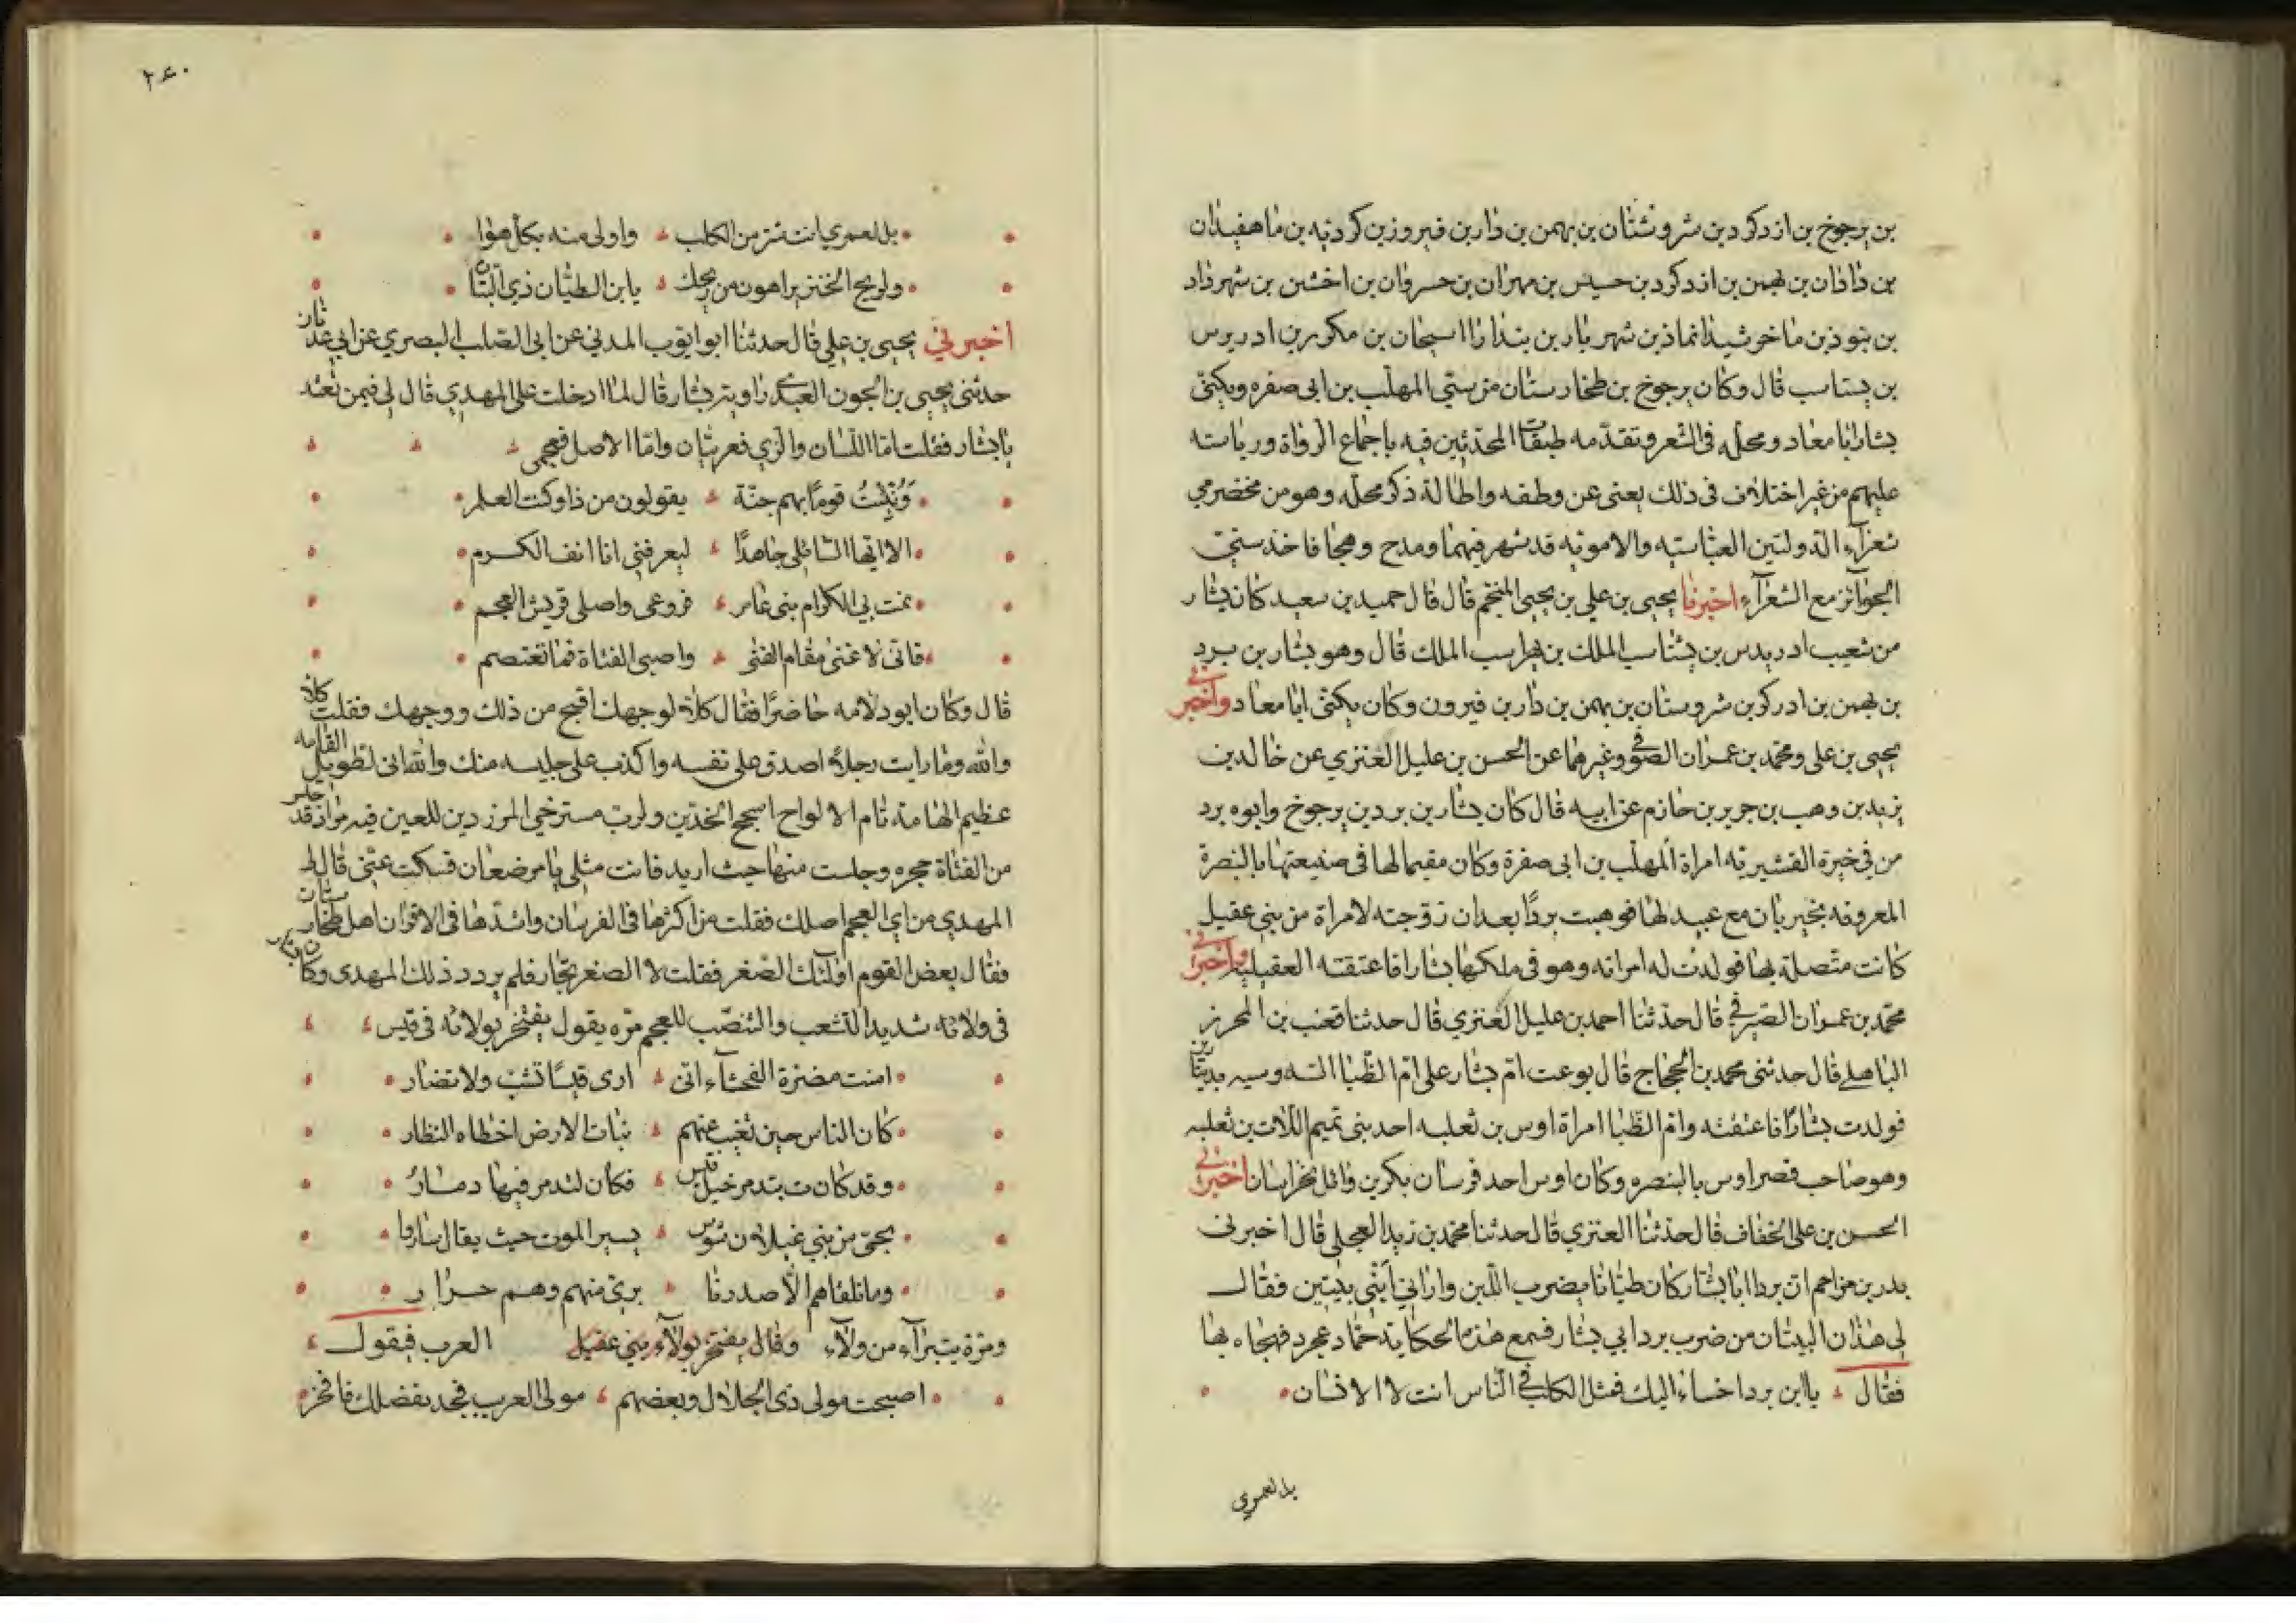 بن يرجوخ بن ازدكرد بن شروشتان بن بهمن بن دار بن فيروز بن كرديه بن ماهفيدان
بن دادان بن بهمن بن ازدكرد بن حسيس بن مهران بن خسروان بن اخشين بن شهرداد
بن نبوذ بن ماخرشيدا نماذ بن شهريار بن بندار اسيحان بن مكرر بن ادريوس
بن يستاسب قال وكان يرجوخ بن طخارستان من سبي المهلب بن ابي صفره ويكنى
بشار ابا معاد ومحله في الشعر وتقدمه طبقات المحدثين فيه باجماع الرواة ورياسته
عليهم من غير اختلاف في ذلك يعني عن وطفه واطالة ذكر محله وهو من مخضرمي
شعرآء الدولتين العباسيه والامويه قد شهر فيهما ومدح وهجا فاخذ سني
الجوآئز مع الشعرآء اخبرنا يحيى بن علي بن يحيى المنجم قال قال حميد بن سعيد كان بشار
من شعيب ادريدس بن يشتاسب الملك بن هراسب الملك قال وهو بشار بن برد
بن بهمن بن ادركر بن شروستان بن بهمن بن دار بن فيرون وكان يكنى ابا معاد واخبرني
يحيى بن علي ومحمد بن عمران الصيرفي وغيرهما عن الحسن بن عليل العنزي عن خالد بن
يزيد بن وهب بن جرير بن حازم عن ابيه قال كان بشار بن برد بن يرجوخ وابوه برد
من في خيرة القشيريه امراة المهلب بن ابي صفرة وكان مقيما لها في ضيعتها بالبصرة
المعروفه بخيربان مع عبيد لها فوهبت بردا بعد ان زوجته لامراة من بني عقيل
كانت متصلة بها فولدت له امراته وهو في ملكها بشارا فاعتقته العقيليه واخبرني
محمد بن عمران الصيرفي قال حدثنا احمد بن عليل العنزي قال حدثنا قعنب بن المحرز
الباهلي قال حدثني محمد بن الحجاج قال بوعت ام بشار على ام الظبا السدوسيه بدينارين
فولدت بشارا فاعتقته وام الظبا امراة اوس بن ثعلبه احد بني تميم اللات بن ثعلبه
وهو صاحب قصر اوس بالبصره وكان اوس احد فرسان بكر بن وائل بخراسان اخبرني
الحسن بن علي الخفاف قال حدثنا العنزي قال حدثنا محمد بن زيد العجلي قال اخبرني
بدر بن مزاحم ان بردا ابا بشار كان طيانا يضرب اللبن واراني ابي بيتين فقال
لي هذان البيتان من ضرب برد ابي بشار فسمع هذه الحكاية حماد عجرد فهجاه بها
فقال يا ابن برد اخساء اليك فمثل الكلب في الناس انت لا الانسان
بل لعمري
٢٤٠
بل لعمري انت شر من الكلب واولى منه بكل هوا
ولريح الخنزير اهون من ريحك يا ابن الطيان ذي التبان
اخبرني يحيى بن علي قال حدثنا ابو ايوب المدني عن ابي الصلت البصري عن ابي عدنان
حدثني يحيى بن الجون العبدي راوية بشار قال لما ادخلت على المهدي قال لي فيمن تعتد
يا بشار فقلت اما اللسان والزي فعربيان واما الاصل فعجمي
ونبئت قوما بهم جنة يقولون من ذا وكنت العلم
الا ايها السائلي جاهدا ليعرفني انا انف الكرم
نمت بي الكرام بني عامر فروعي واصلي قريش العجم
فاني لاغني مقام الفتى واصبي الفتاة فما تعتصم
قال وكان ابو دلامه حاضرا فقال كلا لوجهك اقبح من ذلك ووجهك فقلت كلا
والله وما رايت رجلا اصدق على نفسه واكذب على جليسه منك والله اني لطويل القامه
عظيم الهامة تام الالواح اسجح الخدين ولرب مسترخي المزردين للعين فيه مراد قد جلس
من الفتاة حجره وجلست منها حيث اريد فانت مثلي يا مرضعان فسكت عني قال لي
المهدي من اي العجم اصلك فقلت من اكثرها في الفرسان واشدها في الاقران اهل طخارستان
فقال بعض القوم اولئك الصغر فقلت لا الصغر تجار فلم يردد ذلك المهدي وكان بشار
في ولائه شديد التشعب والتنصب للعجم مره يقول يفتخر بولائه في قيس
امنت مضرة الفحشاء اني ارى قيسا تشب ولا تضار
كان الناس حين تغيب عنهم نبات الارض اخطاه القطار
وقد كانت بتدمر خيل قيس فكان لتدمر فيها دمار
بحي من بني غيلان شوس يسير الموت حيث يقال ساروا
وما نلقاهم الا صدرنا بري منهم وهم حرار
ومرة يتبرآء من ولآء وقال يفتخر بولآء بني عقيل العرب فيقول
اصبحت مولى ذي الجلال وبعضهم مولى العرب فجد بفضلك فافخر